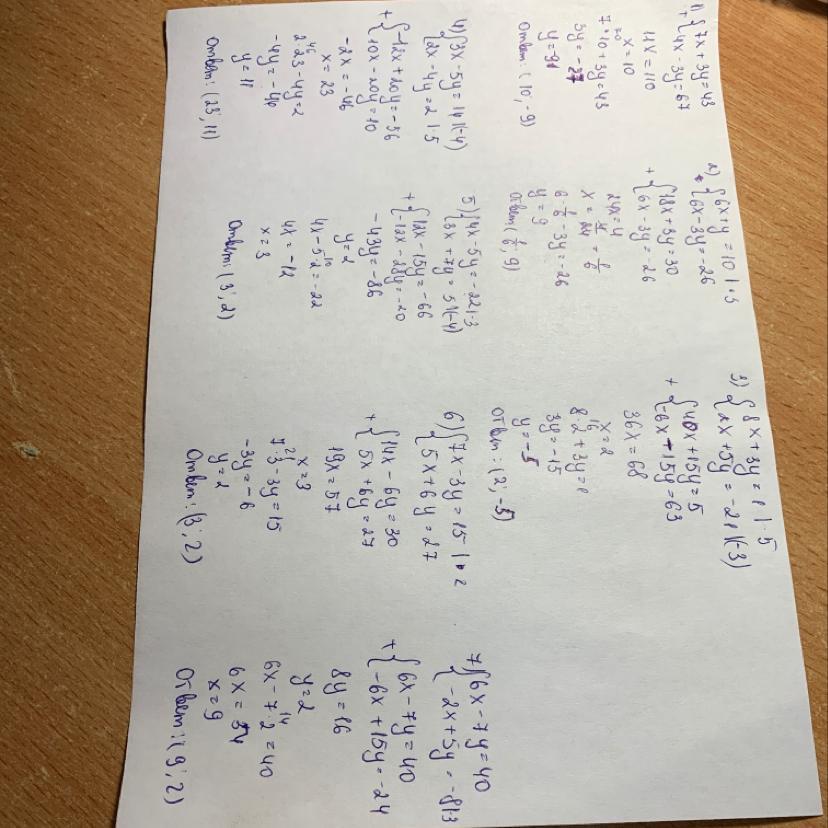 1) { 7x + 3y = 43
+ { 4x - 3y = 67
11x = 110
x = 10
7 · 10 + 3y = 43
3y = -27
y = -9
Ответ: (10; -9)
2) { 6x + y = 10 | · 3
{ 6x - 3y = -26
+ { 18x + 3y = 30
{ 6x - 3y = -26
24x = 4
x = 4/24 = 1/6
6 · 1/6 - 3y = -26
y = 9
Ответ: (1/6; 9)
3) { 8x + 3y = 1 | · 5
{ 2x + 5y = -21 | (-3)
+ { 40x + 15y = 5
{ -6x - 15y = 63
36x = 68
x = 2
8 · 2 + 3y = 1
3y = -15
y = -5
Ответ: (2; -5)
4) { 3x - 5y = 14 | (-4)
{ 2x - 4y = 2 | · 5
+ { -12x + 20y = -56
{ 10x - 20y = 10
-2x = -46
x = 23
2 · 23 - 4y = 2
-4y = -44
y = 11
Ответ: (23; 11)
5) { 4x - 5y = -22 | · 3
{ 3x + 7y = 5 | (-4)
+ { 12x - 15y = -66
{ -12x - 28y = -20
-43y = -86
y = 2
4x - 5 · 2 = -22
4x = -12
x = 3
Ответ: (3; 2)
6) { 7x - 3y = 15 | · 2
{ 5x + 6y = 27
+ { 14x - 6y = 30
{ 5x + 6y = 27
19x = 57
x = 3
7 · 3 - 3y = 15
-3y = -6
y = 2
Ответ: (3; 2)
7) { 6x - 7y = 40
{ -2x + 5y = -8 | · 3
+ { 6x - 7y = 40
{ -6x + 15y = -24
8y = 16
y = 2
6x - 7 · 2 = 40
6x = 54
x = 9
Ответ: (9; 2)